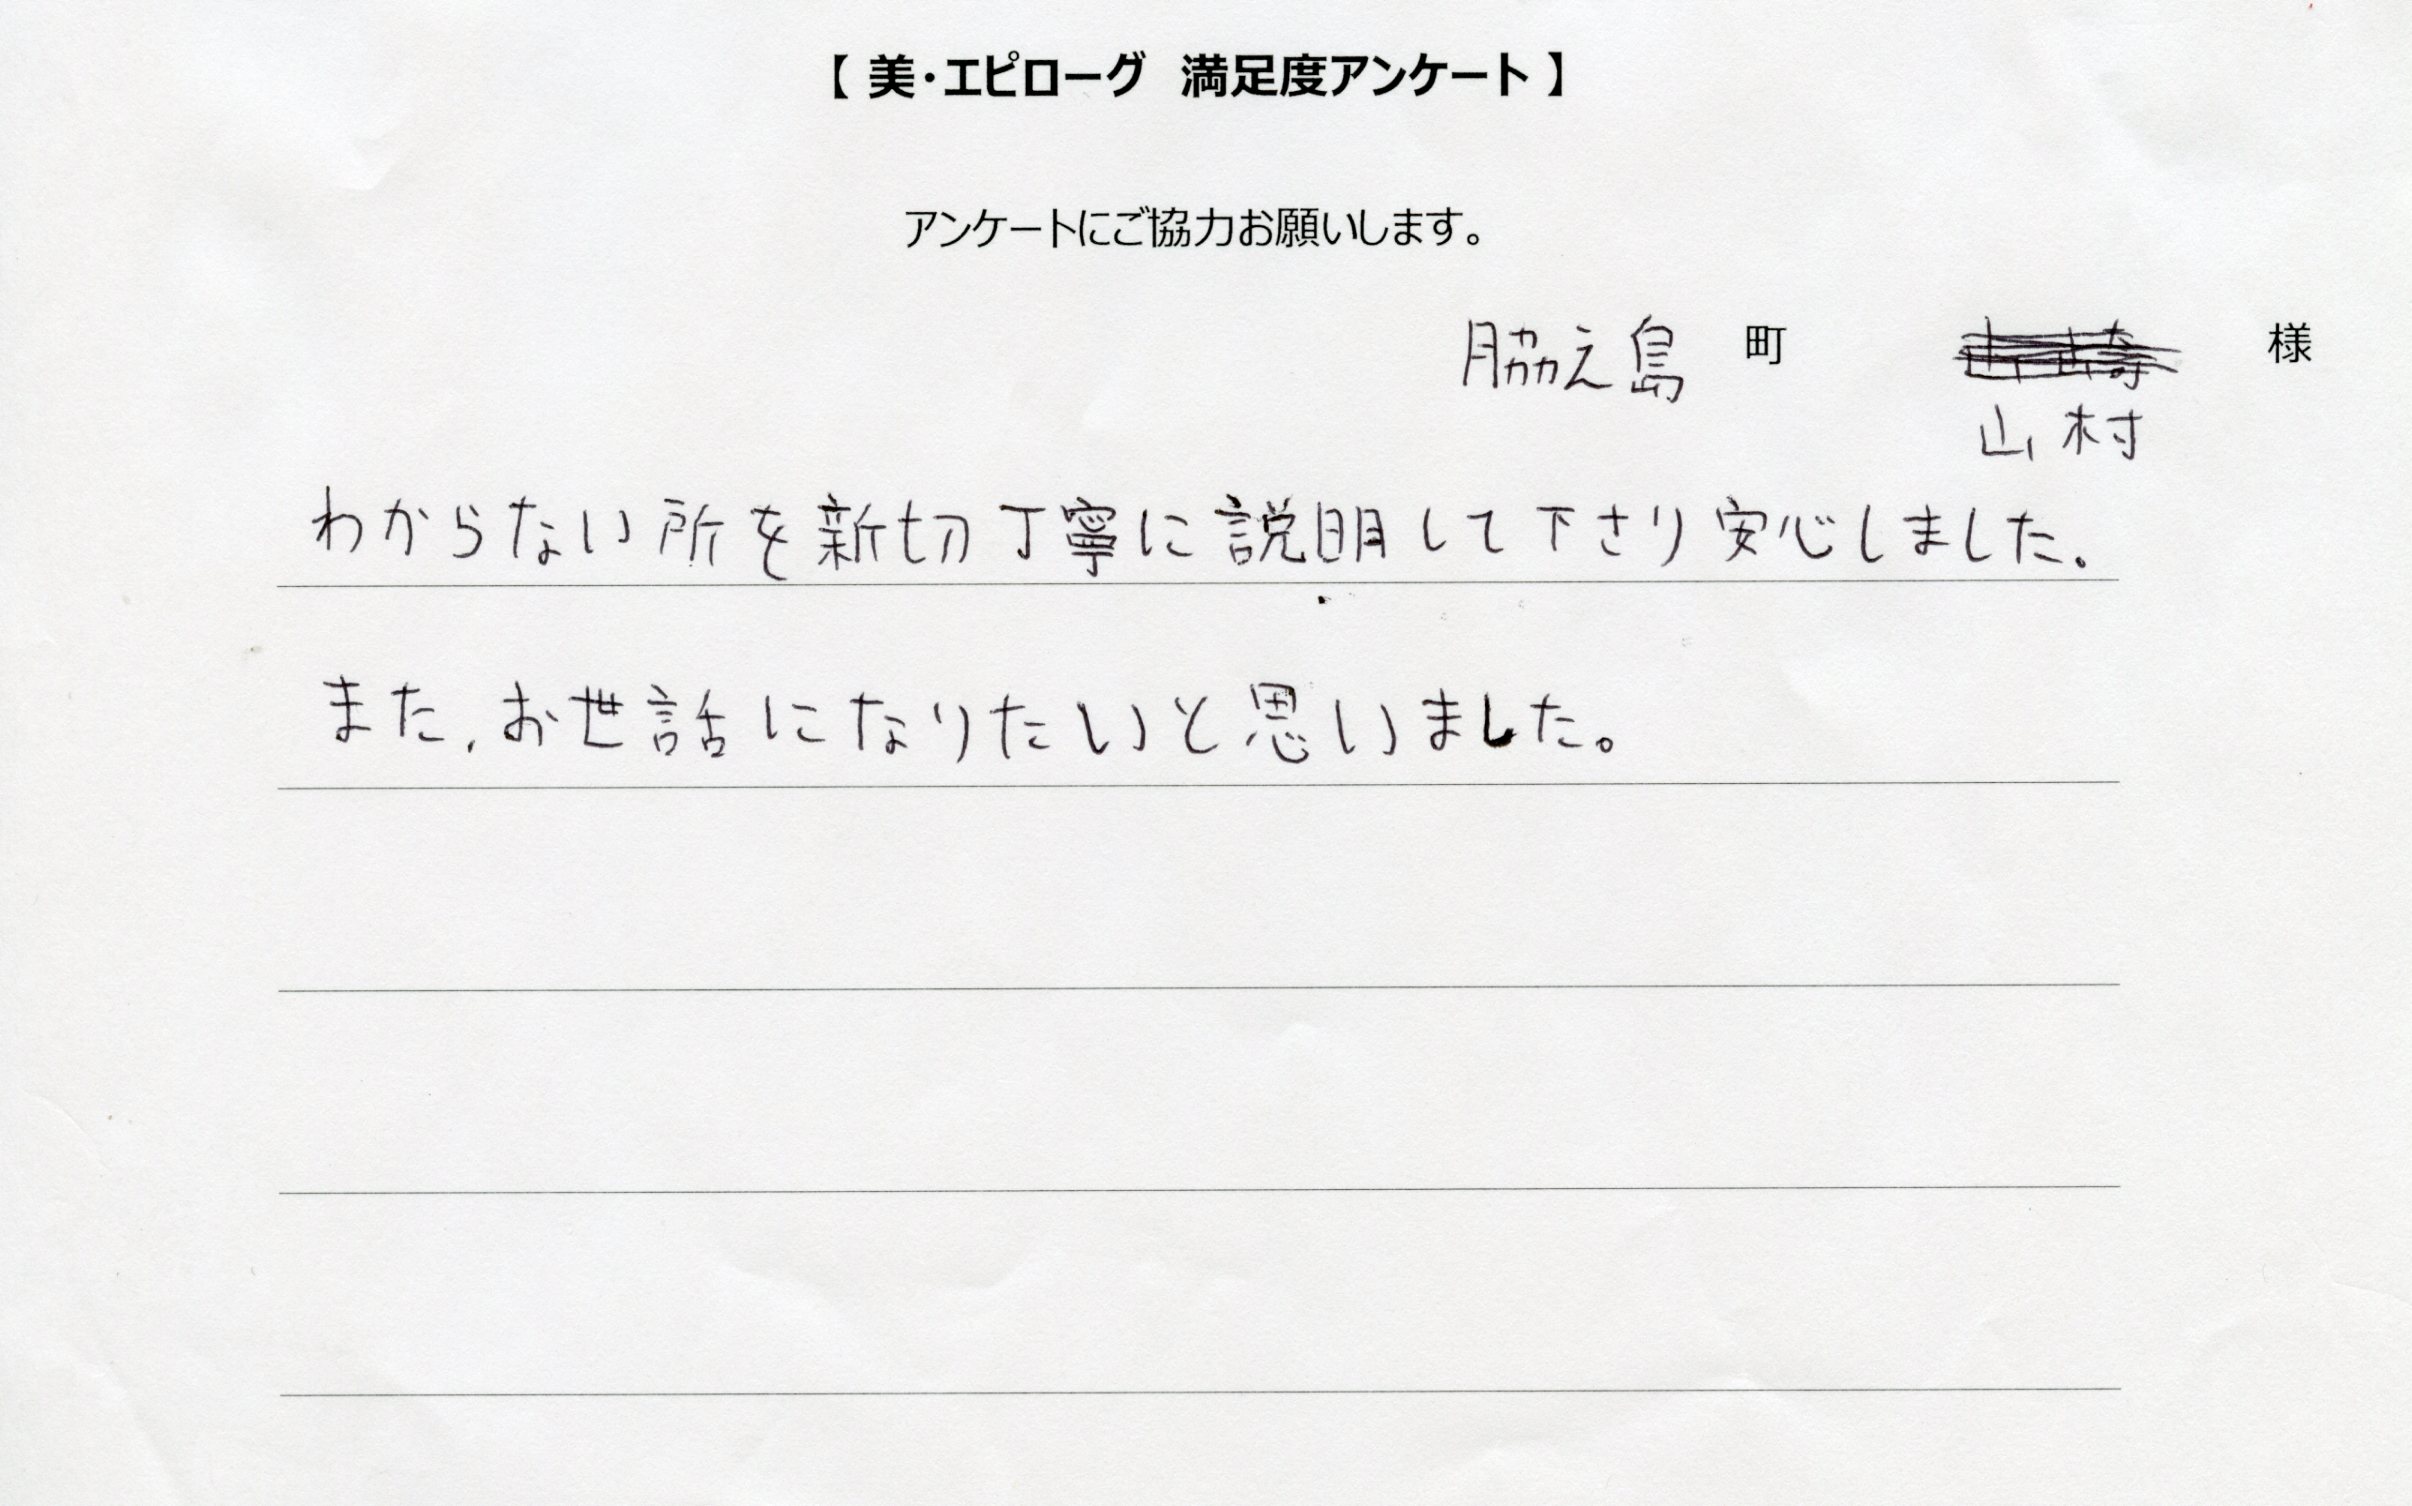 【 美・エピローグ 満足度アンケート 】
アンケートにご協力お願いします。
脇之島 町 様
山村
わからない所を新切丁寧に説明して下さり安心しました。
また、お世話になりたいと思いました。